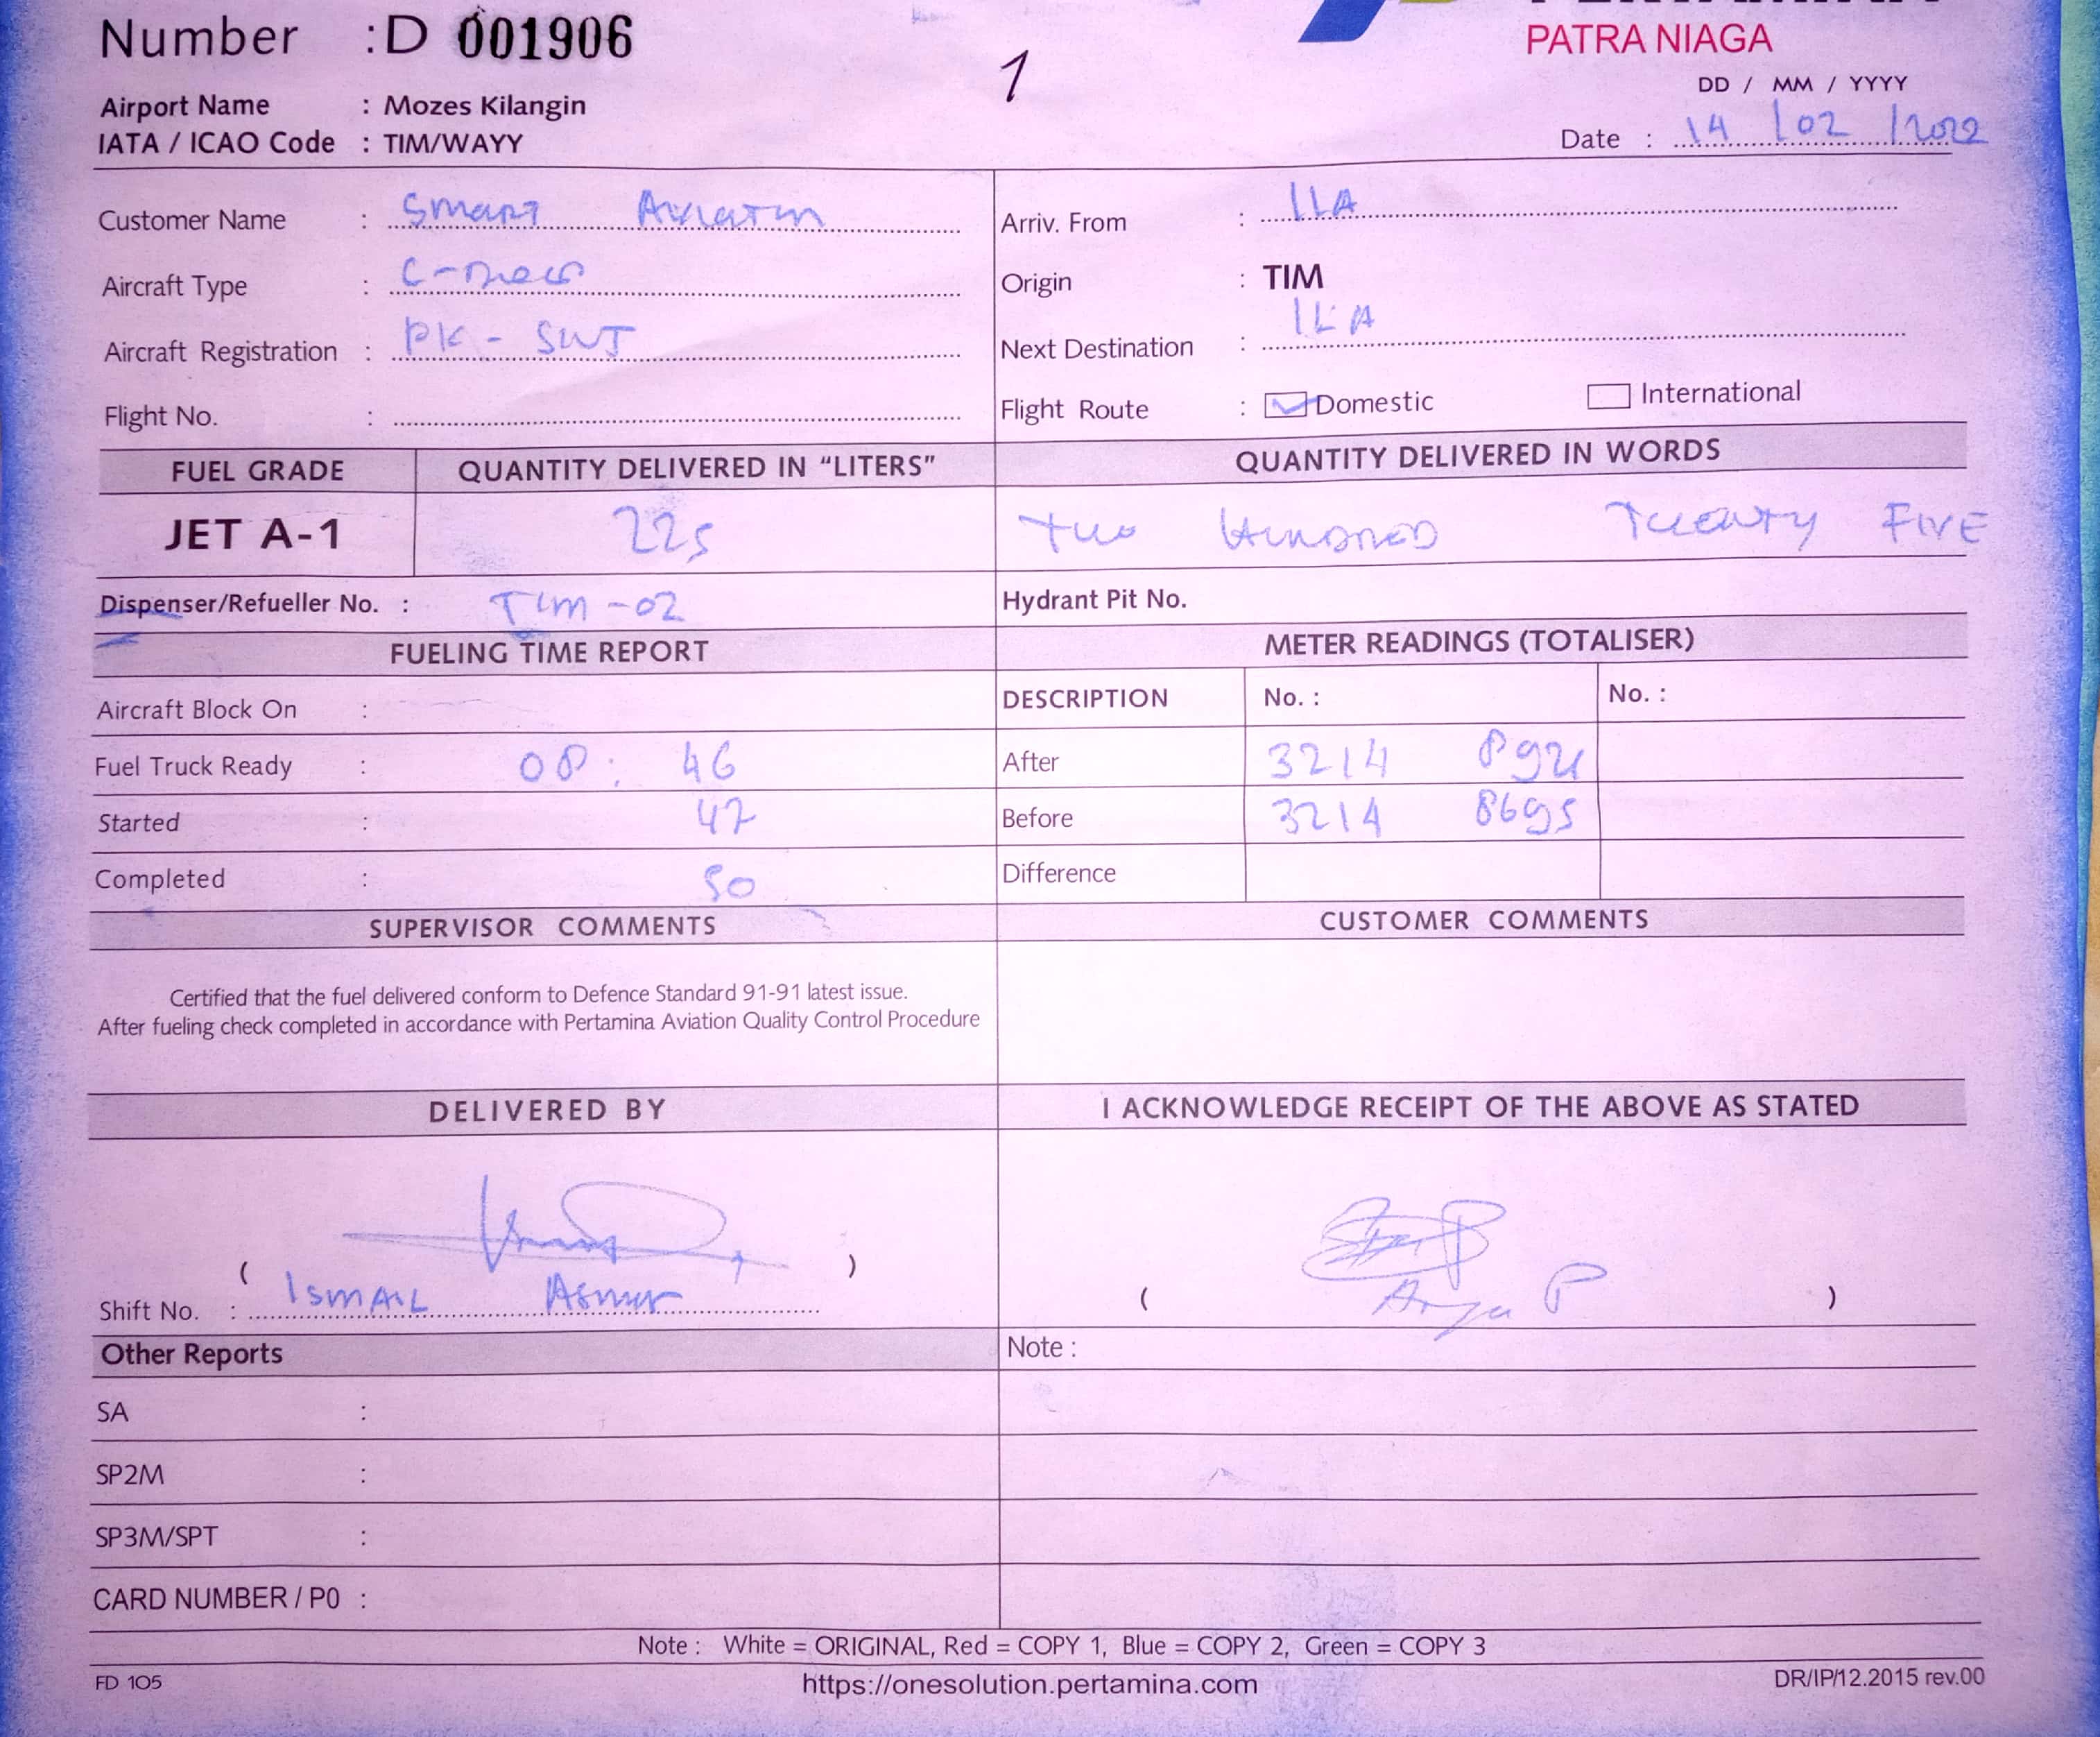 Number : D 001906
1
PATRA NIAGA
DD / MM / YYYY
Airport Name : Mozes Kilangin
IATA / ICAO Code : TIM/WAYY
Date : 14 / 02 / 2022
Customer Name : Smart Aviation
Arriv. From : ILA
Aircraft Type :
Origin : TIM
Aircraft Registration : PK - SWJ
Next Destination : ILA
Flight No. :
Flight Route : Domestic International
FUEL GRADE QUANTITY DELIVERED IN “LITERS” QUANTITY DELIVERED IN WORDS
JET A-1 225 Two HUNDRED TWENTY FIVE
Dispenser/Refueller No. : TIM -02 Hydrant Pit No.
FUELING TIME REPORT METER READINGS (TOTALISER)
Aircraft Block On : DESCRIPTION No. : No. :
Fuel Truck Ready : 08 : 46 After 3214
Started : 47 Before 3214 8695
Completed : 50 Difference
SUPERVISOR COMMENTS CUSTOMER COMMENTS
Certified that the fuel delivered conform to Defence Standard 91-91 latest issue.
After fueling check completed in accordance with Pertamina Aviation Quality Control Procedure
DELIVERED BY I ACKNOWLEDGE RECEIPT OF THE ABOVE AS STATED
( )
Shift No. : ISMAIL
( Arya P )
Other Reports Note :
SA :
SP2M :
SP3M/SPT :
CARD NUMBER / P0 :
Note : White = ORIGINAL, Red = COPY 1, Blue = COPY 2, Green = COPY 3
FD 105 https://onesolution.pertamina.com DR/IP/12.2015 rev.00